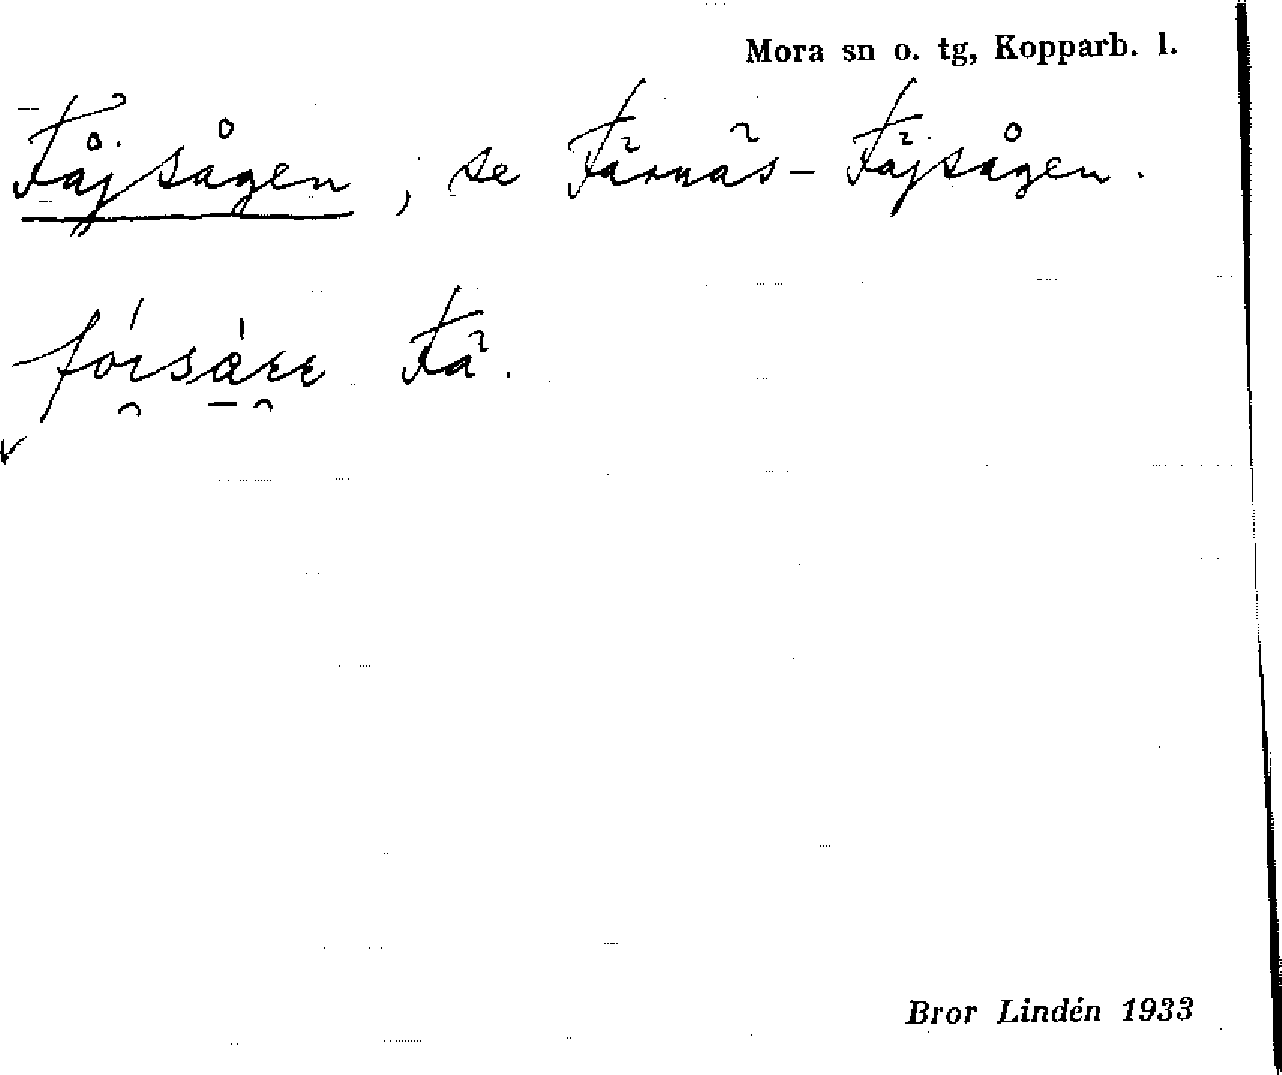 Mora sn o. tg, Kopparb. l.
Fåjsågen, se Färnäs-Fäjsågen.
Fä.
Bror Lindén 1933